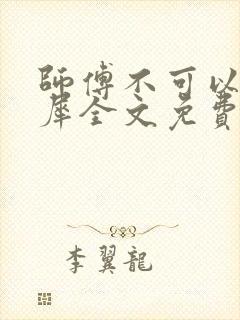 師傅不可以
犀全文免費
李翼龍